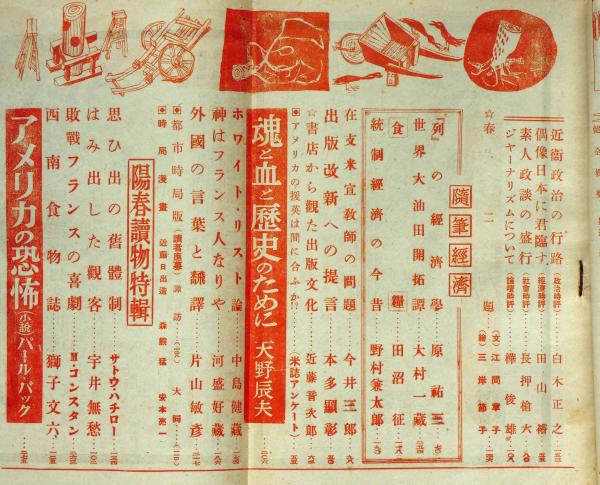 近衞政治の行路(政治時評)……白木正之
偶像日本に君臨す(經濟時評)……田山 椿
素人政談の盛行(社會時評)……長押槍六
ジヤーナリズムについて(論壇時評)……樺俊雄
☆春二題(文)江間章子
(繪)三岸節子
隨筆經濟
『列』の經濟學……原祐三
世界大油田開拓譚……大村一藏
食糧……田沼征
統制經濟の今昔……野村兼太郎
在支米宣敎師の問題……今井三郎
出版改新への提言……本多顯彰
☆書店から觀た出版文化……近藤音次郎
●アメリカの援英は間に合ふか?……(米誌アンケート)
魂と血と歷史のために 天野辰夫
ホワイト・リスト論……中島健藏
神はフランス人なりや……河盛好藏
外國の言葉と飜譯……片山敏彥
●都市時局版(讀者應募)諏訪 大岡
●時局漫畫 近藤日出造 森熊猛 安本亮一
陽春讀物特輯
思ひ出の舊體制……サトウハチロー
はみ出した觀客……宇井無愁
敗戰フランスの喜劇……H・コンスタン
西南食物誌……獅子文六
アメリカの恐怖(小說)パール・バック